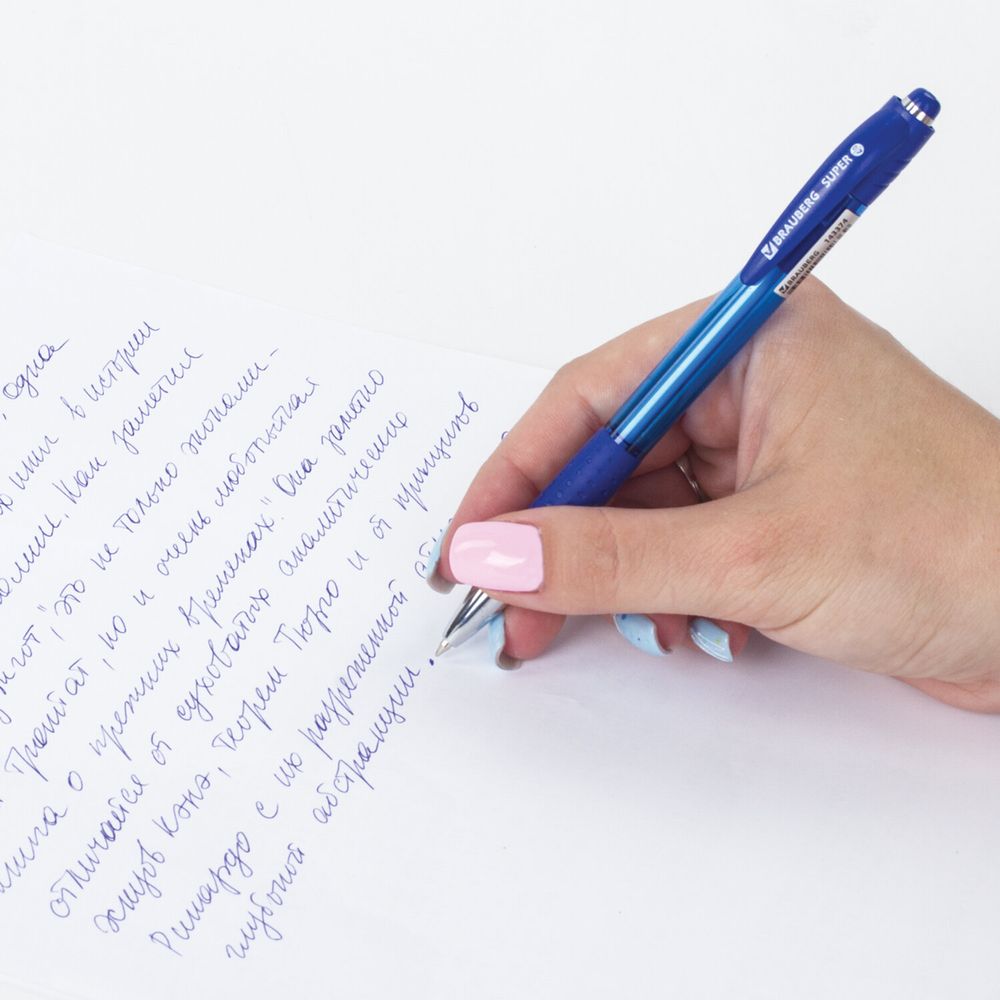 , одна
в истории
Как заметил
, "это не только экономи-
трактат, но и очень любопытная
книга о прежних временах." Она заметно
отличается от суховатых аналитических
Кэнэ, теории Тюрго и от принципов
Рикардо с их разреженной
глубокой абстракции.
BRAUBERG SUPER
BRAUBERG 143374